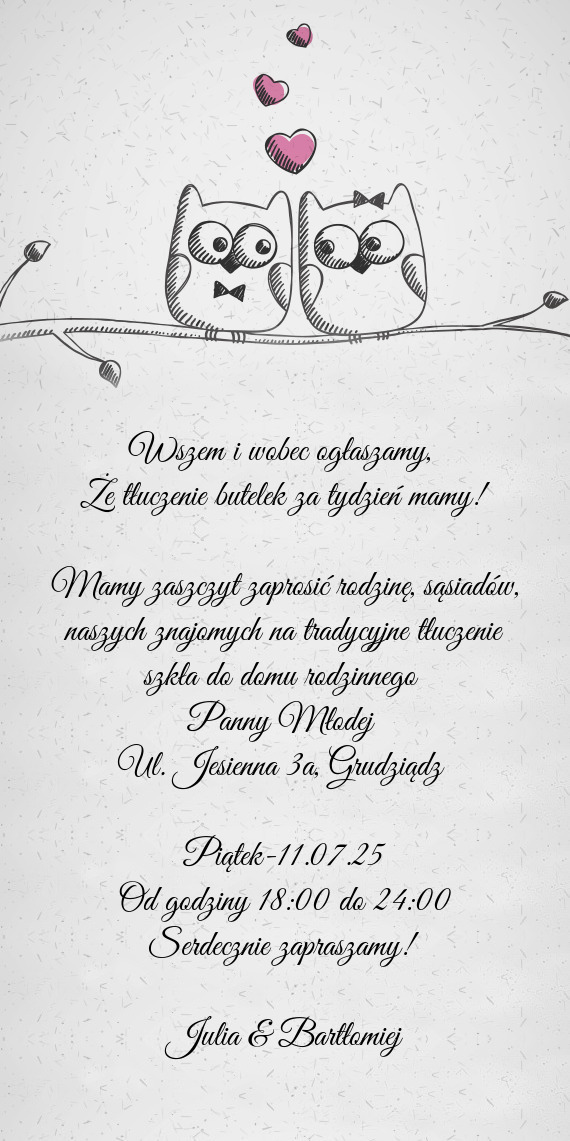 Wszem i wobec ogłaszamy,
Że tłuczenie butelek za tydzień mamy!
Mamy zaszczyt zaprosić rodzinę, sąsiadów,
naszych znajomych na tradycyjne tłuczenie
szkła do domu rodzinnego
Panny Młodej
Ul. Jesienna 3a, Grudziądz
Piątek-11.07.25
Od godziny 18:00 do 24:00
Serdecznie zapraszamy!
Julia & Bartłomiej